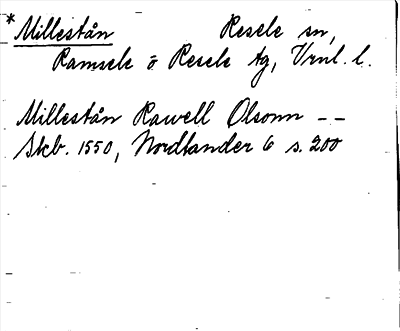 * Millestån Resele sn,
Ramsele o Resele tg, Vrnl. l.
Millestån Rawell Olsonn --
Skb. 1550, Nordlander 6 s. 200